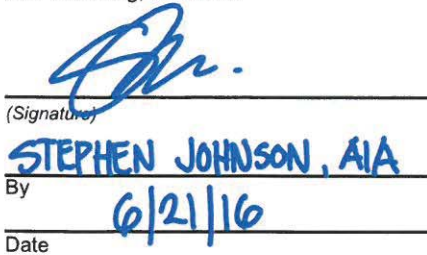 (Signature)
STEPHEN JOHNSON, AIA
By
6/21/16
Date